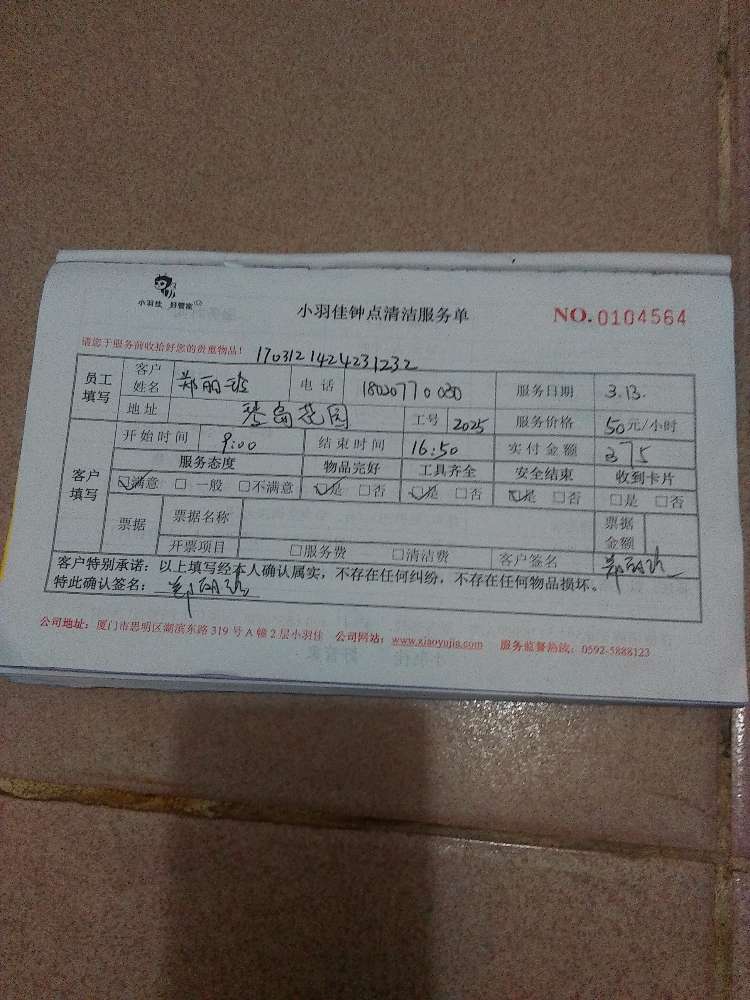 小羽佳 好管家
小羽佳钟点清洁服务单
NO.0104564
请您于服务前收拾好您的贵重物品!
1703121424231232
员工填写 客户姓名 郑丽 电话 18020770030 服务日期 3.13.
地址 琴岛花园 工号 2025 服务价格 50元/小时
客户填写 开始时间 9:00 结束时间 16:50 实付金额 375
服务态度 物品完好 工具齐全 安全结束 收到卡片
☑满意 □一般 □不满意 ☑是 □否 ☑是 □否 ☑是 □否 □是 □否
票据 票据名称 票据金额
开票项目 □服务费 □清洁费 客户签名 郑丽
客户特别承诺:以上填写经本人确认属实,不存在任何纠纷,不存在任何物品损坏。
特此确认签名: 郑丽
公司地址:厦门市思明区湖滨东路319号A幢2层小羽佳 公司网站:www.xiaoyujia.com 服务监督热线:0592-5888123